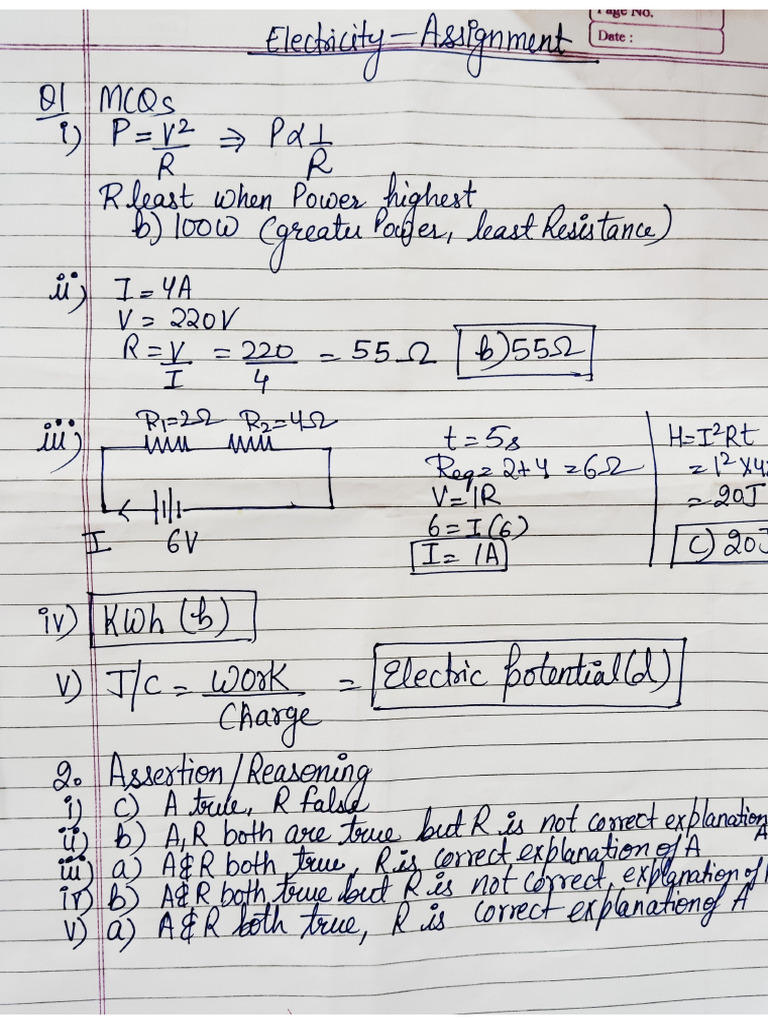 Page No.
Date :
Electricity - Assignment
Q1 MCQs
i) P = V²/R ⇒ P ∝ 1/R
R least when Power highest
b) 100W (greater Power, least Resistance)
ii) I = 4A
V = 220V
R = V/I = 220/4 = 55Ω b) 55Ω
iii) R₁=2Ω R₂=4Ω
I 6V
t = 5s
Req = 2+4 = 6Ω
V = IR
6 = I(6)
I = 1A
H = I²Rt
= 1² × 4
= 20J
c) 20J
iv) KWh (b)
v) J/C = Work/Charge = Electric Potential (d)
2. Assertion / Reasoning
i) c) A true, R false
ii) b) A, R both are true but R is not correct explanation A
iii) a) A & R both true, R is correct explanation of A
iv) b) A & R both true but R is not correct explanation of
v) a) A & R both true, R is correct explanation of A